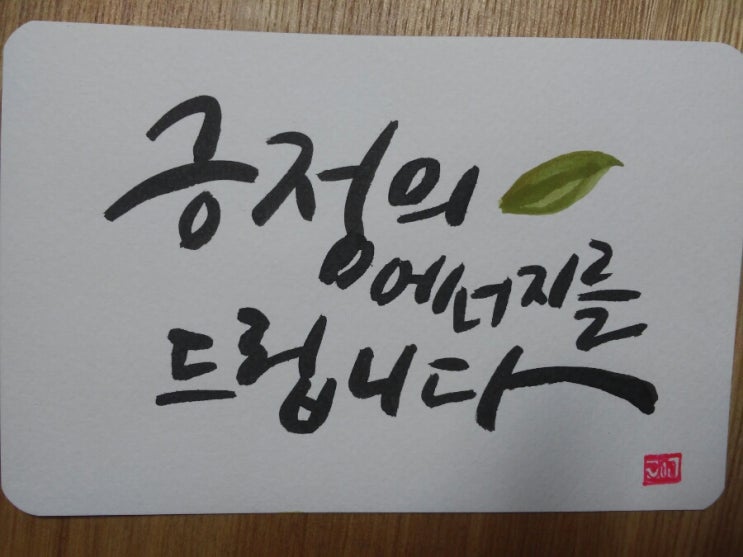 긍정의
에너지를
드립니다